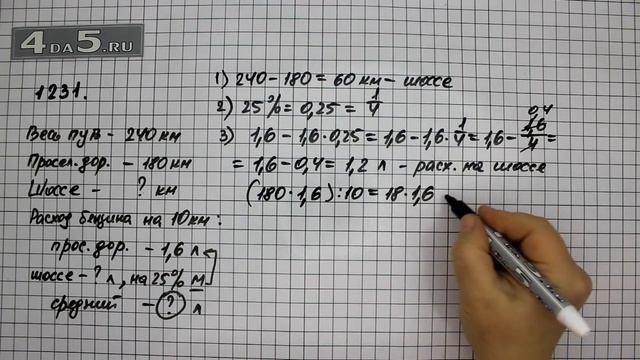 4DA5.RU
1231.
Весь путь - 240 км
Просел. дор. - 180 км
Шоссе - ? км
Расход бензина на 10 км:
прос. дор. - 1,6 л
шоссе - ? л, на 25% м
средний - ? л
1) 240 - 180 = 60 км - шоссе
2) 25% = 0,25 = 1/4
3) 1,6 - 1,6 · 0,25 = 1,6 - 1,6 · 1/4 = 1,6 - 1,6/4 =
0,4
= 1,6 - 0,4 = 1,2 л - расх. на шоссе
(180 · 1,6) : 10 = 18 · 1,6